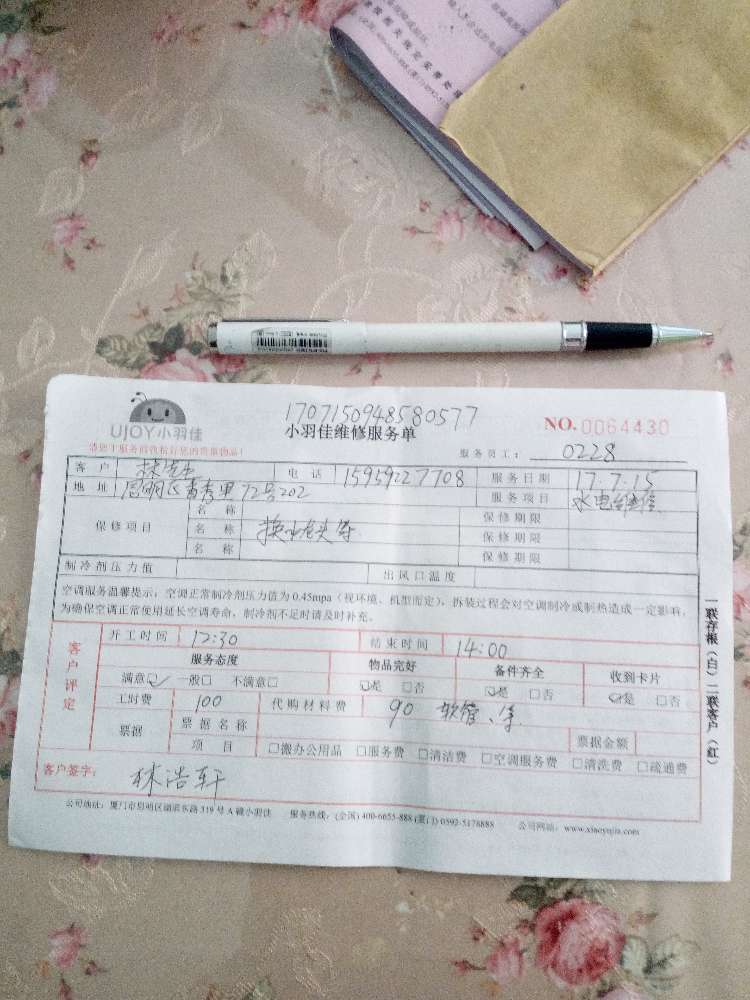 1707150948580577
UJOY小羽佳
小羽佳维修服务单
NO.0064430
服务员工： 0228
客户 林先生 电话 15959227708 服务日期 17.7.15
地址 思明区 72号202 服务项目 水电维修
保修项目
名称 保修期限
名称 换水龙头等 保修期限
名称 保修期限
制冷剂压力值 出风口温度
空调服务温馨提示：空调正常制冷剂压力值为0.45mpa（视环境、机型而定），拆装过程会对空调制冷或制热造成一定影响，
为确保空调正常使用延长空调寿命，制冷剂不足时请及时补充。
客户评定
开工时间 12:30 结束时间 14:00
服务态度 物品完好 备件齐全 收到卡片
满意☑ 一般□ 不满意□ ☑是 □否 ☑是 □否 ☑是 □否
工时费 100 代购材料费 90 软管、等
票据 票据名称 票据金额
项目 □搬办公用品 □服务费 □清洁费 □空调服务费 □清洗费 □疏通费
客户签字： 林浩轩
公司地址：厦门市思明区湖滨东路319号A 小羽佳 服务热线：(全国) 400-6655-888 (厦门) 0592-5178888 公司网站：www.xiaoyujia.com
一联存根（白）二联客户（红）